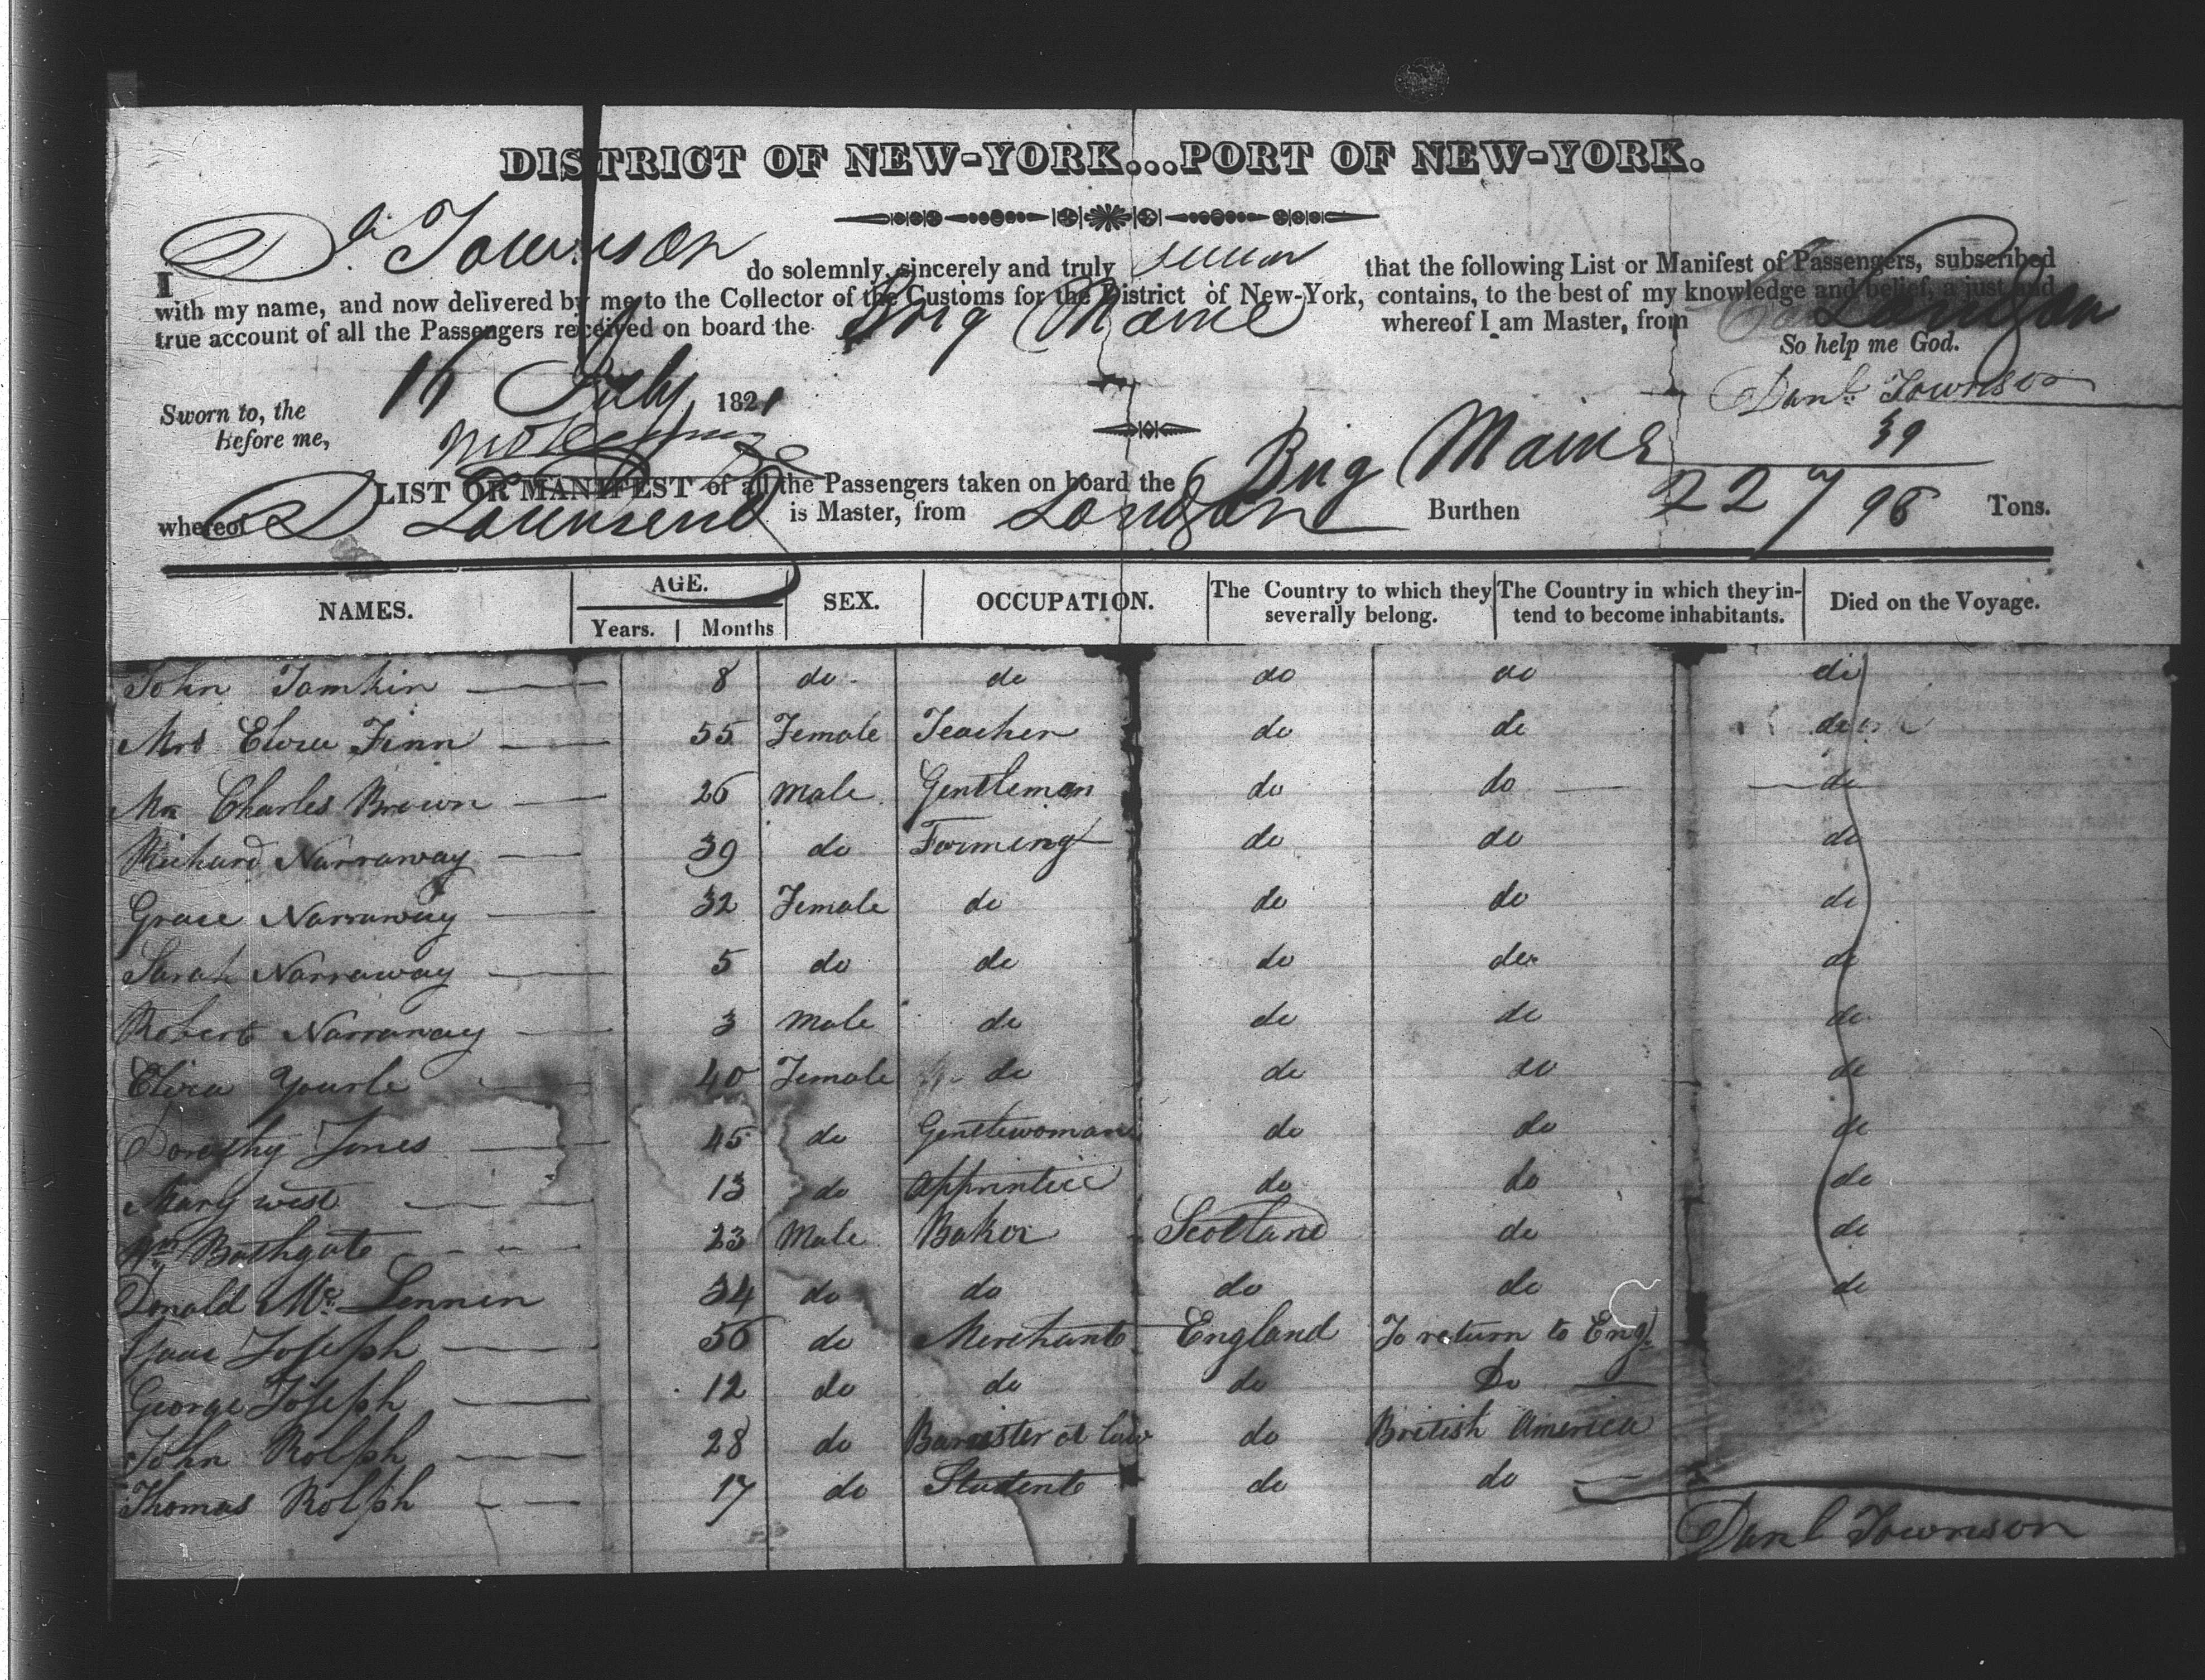 DISTRICT OF NEW-YORK...PORT OF NEW-YORK.
I D. Townson do solemnly, sincerely and truly swear that the following List or Manifest of Passengers, subscribed
with my name, and now delivered by me to the Collector of the Customs for the District of New-York, contains, to the best of my knowledge and belief, a just and
true account of all the Passengers received on board the Brig Maine whereof I am Master, from London
So help me God.
Sworn to, the 16 July 1821 Danl. Townson
Before me,
39
LIST OR MANIFEST of all the Passengers taken on board the Brig Maine
whereof D Townsend is Master, from London Burthen 227/98 Tons.
NAMES. AGE. SEX. OCCUPATION. The Country to which they severally belong. The Country in which they intend to become inhabitants. Died on the Voyage.
Years. Months
John Tamkin 8 do do do do do
Mrs Eliza Finn 55 Female Teacher do do do
Mr Charles Brown 26 Male Gentleman do do do
Richard Narraway 39 do Farming do do do
Grace Narraway 32 Female do do do do
Sarah Narraway 5 do do do do do
Robert Narraway 3 Male do do do do
Eliza 40 Female do do do do
Dorothy Jones 45 do Gentlewoman do do do
Mary west 13 do Apprentice do do do
Wm Bathgate 23 Male Baker Scotland do do
Donald Mc. Lennen 34 do do do do do
Isaac Joseph 56 do Merchant England To return to Engd.
George Joseph 12 do do do Do
John Rolph 28 do Barrister at law do British America
Thomas Rolph 17 do Student do do
Danl Townson